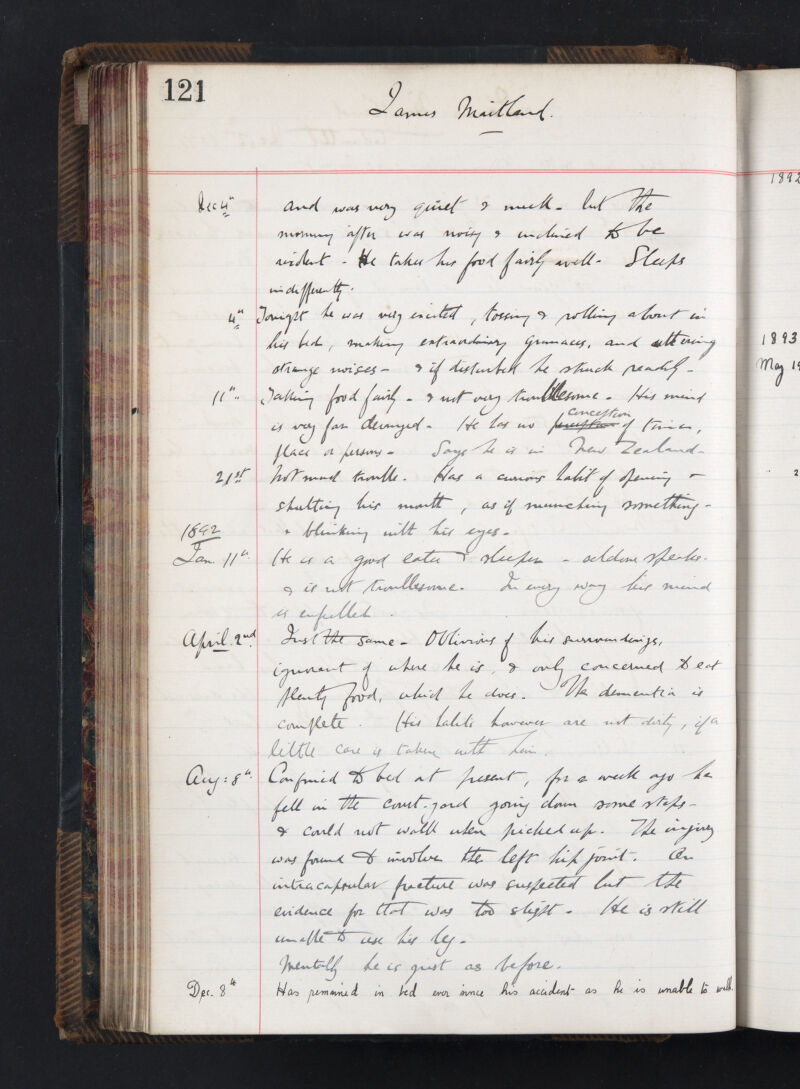 121
James Maitland.
Dec 4th and was very quiet & meek - but the
morning after was noisy & inclined to be
violent - He takes his food fairly well - Sleeps
indifferently.
4th Tonight he was very excited, tossing & rolling about in
his bed, making extraordinary grimaces, and uttering
strange noises - & if disturbed he struck readily -
11th Taking food fairly - & not very troublesome - His mind
conception
is very far deranged - He has no perception of time,
place or persons - Says he is in New Zealand -
21st Not much trouble. Has a curious habit of opening &
shutting his mouth, as if munching something -
1892 & blinking with his eyes -
Jan. 11th He is a good eater & sleeper - seldom speaks -
& is not troublesome. In every way his mind
is enfeebled.
April 2nd Just the same - Oblivious of his surroundings,
ignorant of where he is, & only concerned to eat
plenty food, which he does. The dementia is
complete. His habits however are not dirty, if a
little care is taken with him.
Aug: 8th Confined to bed at present, for a week ago he
fell in the court-yard going down some steps -
& could not walk when picked up. The injury
was found to involve the left hip joint. An
intracapsular fracture was suspected but the
evidence for that was too slight - He is still
unable to use his leg -
Mentally he is just as before.
Dec. 8th Has remained in bed ever since his accident as he is unable to walk.
1892
1893
May 19
2